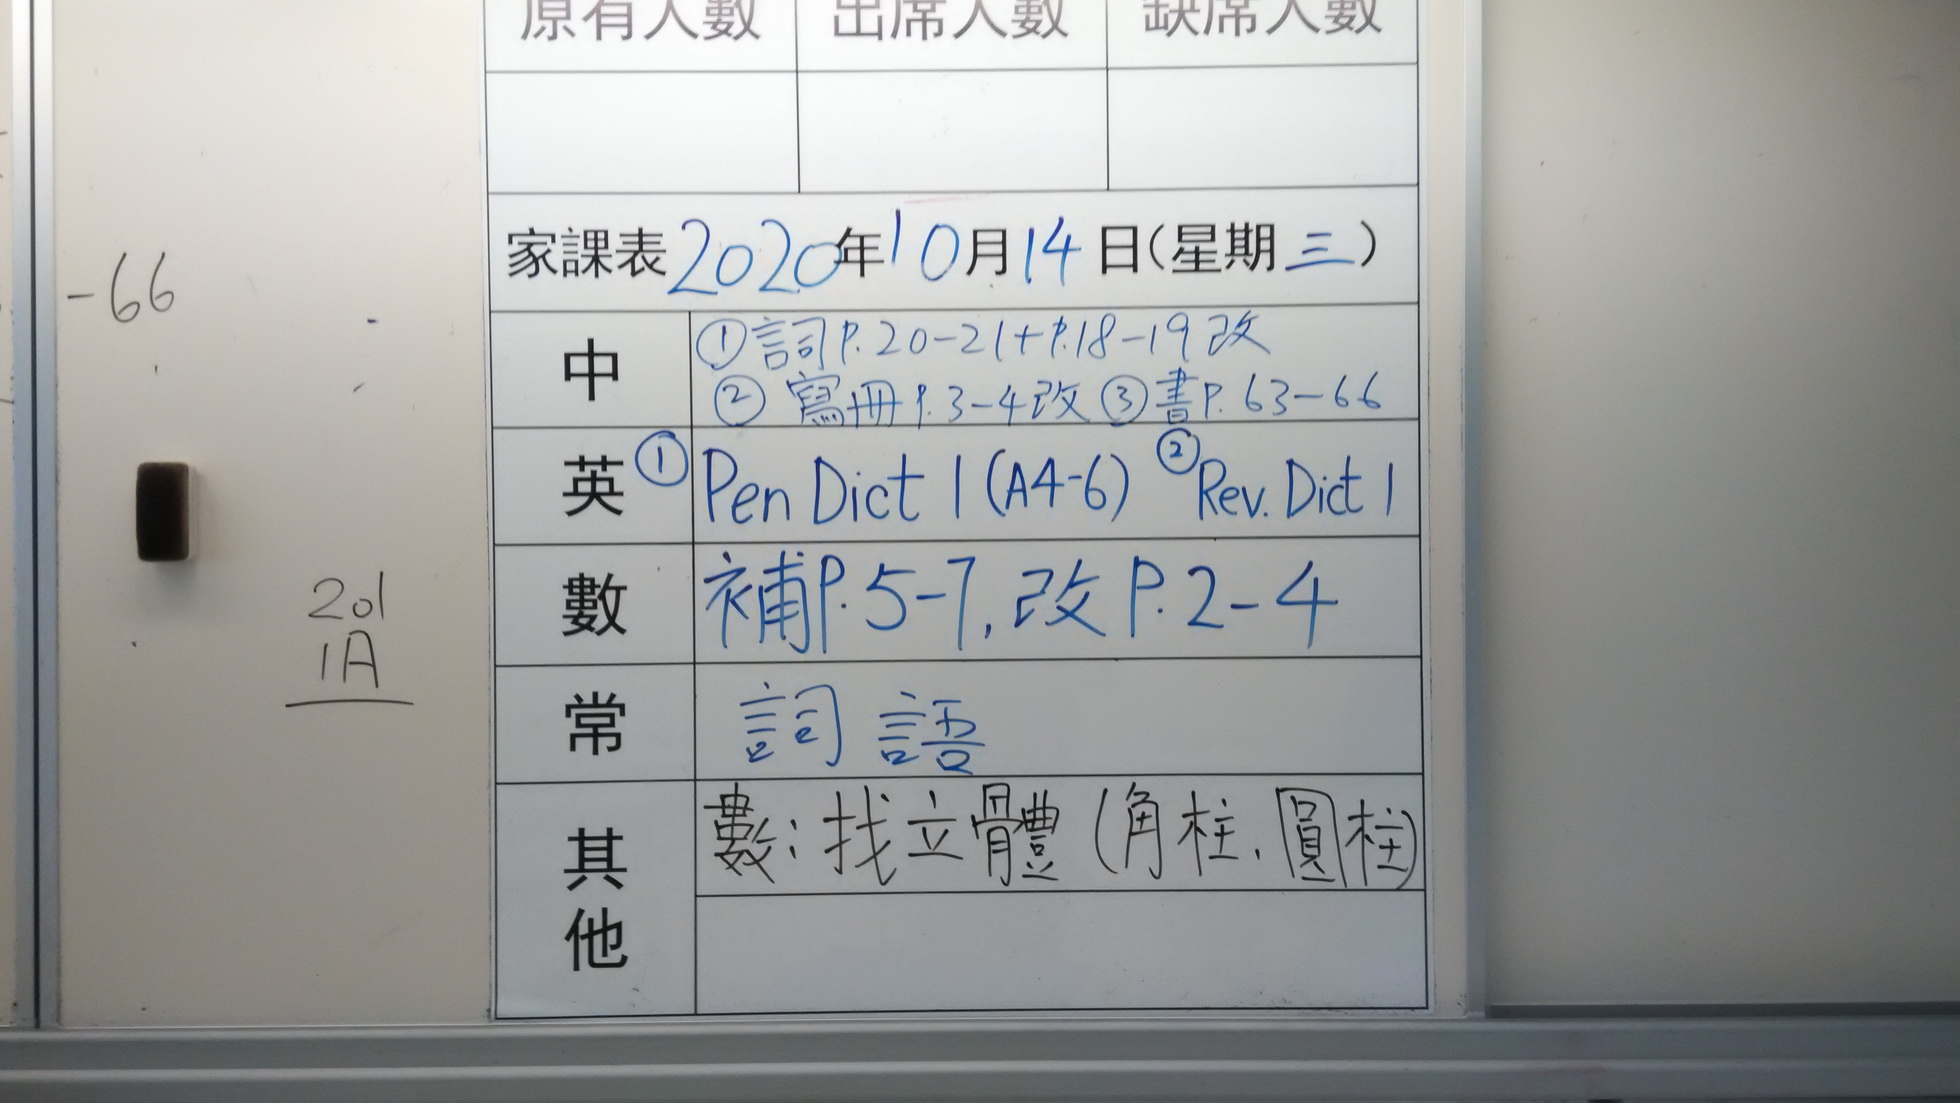 原有人數 出席人數 缺席人數
家課表 2020年10月14日(星期三)
中 ①詞P.20-21+P.18-19改
②寫冊P.3-4改 ③書P.63-66
英 ①Pen Dict 1 (A4-6) ②Rev. Dict 1
數 補P.5-7, 改P.2-4
常 詞語
其他 數:找立體(角柱,圓柱)
-66
201
1A